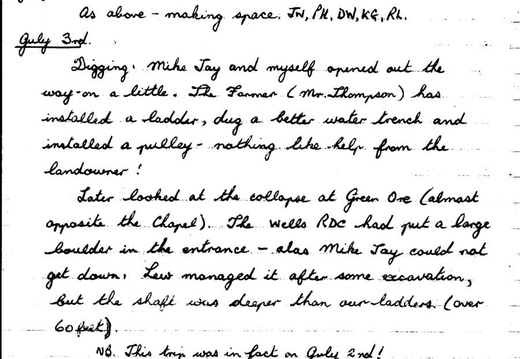 As above - making space. JN, PH, DW, KG, RL.
July 3rd.
Digging. Mike Jay and myself opened out the
way-on a little. The Farmer (Mr. Thompson) has
installed a ladder, dug a better water trench and
installed a pulley - nothing like help from the
landowner!
Later looked at the collapse at Green Ore (almost
opposite the Chapel). The Wells RDC had put a large
boulder in the entrance - alas Mike Jay could not
get down. Lew managed it after some excavation,
but the shaft was deeper than our ladders. (over
60 feet).
NB. This trip was in fact on July 2nd!